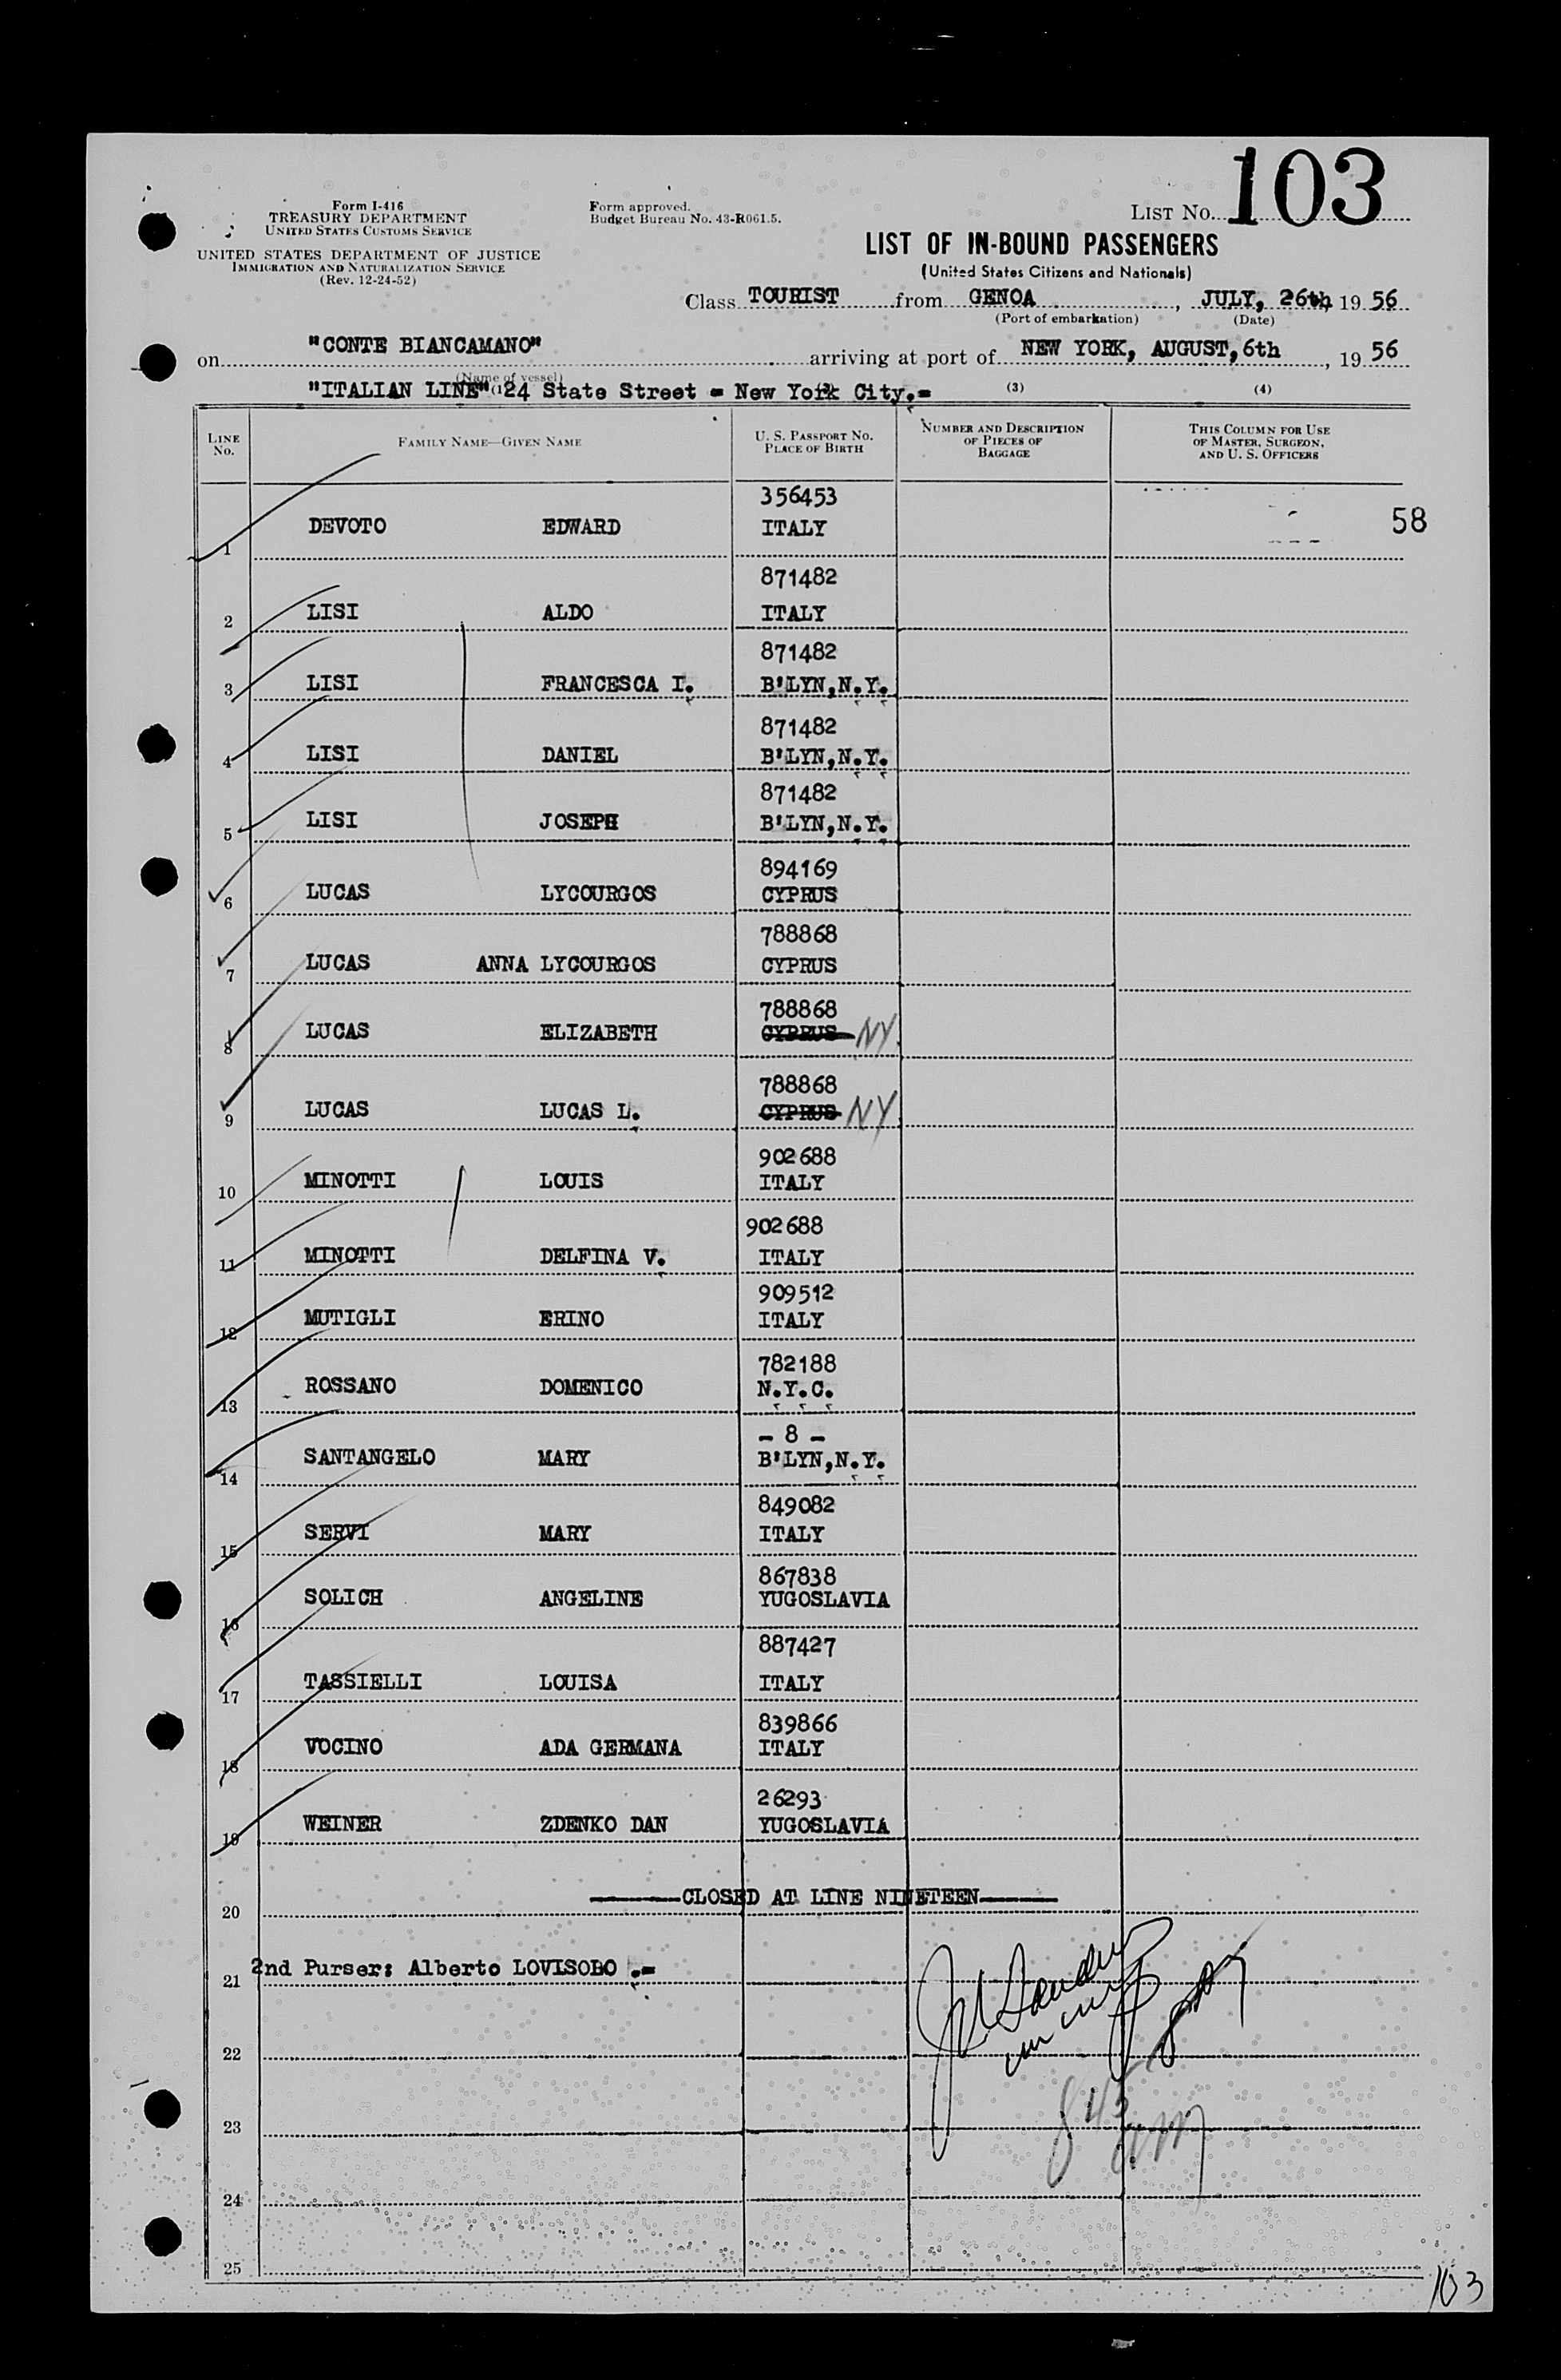 103
Form I-416
TREASURY DEPARTMENT
UNITED STATES CUSTOMS SERVICE
UNITED STATES DEPARTMENT OF JUSTICE
IMMIGRATION AND NATURALIZATION SERVICE
(Rev. 12-24-52)
Form approved.
Budget Bureau No. 43-R061.5.
LIST No.
LIST OF IN-BOUND PASSENGERS
(United States Citizens and Nationals)
Class TOURIST from GENOA, JULY, 26th, 19 56
(Port of embarkation) (Date)
on "CONTE BIANCAMANO" arriving at port of NEW YORK, AUGUST, 6th, 19 56
(Name of vessel)
"ITALIAN LINE" 24 State Street = New York City.=
(1) (2) (3) (4)
LINE No. FAMILY NAME—GIVEN NAME U. S. PASSPORT NO. PLACE OF BIRTH NUMBER AND DESCRIPTION OF PIECES OF BAGGAGE THIS COLUMN FOR USE OF MASTER, SURGEON, AND U. S. OFFICERS
356453
1 DEVOTO EDWARD ITALY 58
871482
2 LISI ALDO ITALY
871482
3 LISI FRANCESCA I. B'LYN,N.Y.
871482
4 LISI DANIEL B'LYN,N.Y.
871482
5 LISI JOSEPH B'LYN,N.Y.
894169
6 LUCAS LYCOURGOS CYPRUS
788868
7 LUCAS ANNA LYCOURGOS CYPRUS
788868
8 LUCAS ELIZABETH CYPRUS NY
788868
9 LUCAS LUCAS L. CYPRUS NY
902688
10 MINOTTI LOUIS ITALY
902688
11 MINOTTI DELFINA V. ITALY
909512
12 MUTIGLI ERINO ITALY
782188
13 ROSSANO DOMENICO N.Y.C.
- 8 -
14 SANTANGELO MARY B'LYN,N.Y.
849082
15 SERVI MARY ITALY
867838
16 SOLICH ANGELINE YUGOSLAVIA
887427
17 TASSIELLI LOUISA ITALY
839866
18 VOCINO ADA GERMANA ITALY
26293
19 WEINER ZDENKO DAN YUGOSLAVIA
CLOSED AT LINE NINETEEN
20
21 2nd Purser: Alberto LOVISOLO .=
22
23
24
25
103